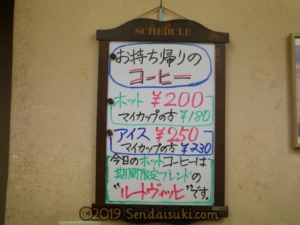 SCHEDULE
お持ち帰りの
コーヒー
ホット ¥200
マイカップの方 ¥180
アイス ¥250
マイカップの方 ¥230
今日のホットコーヒーは
期間限定ブレンドの
"ルートヴィッヒ"です。
©2019 Sendaisuki.com